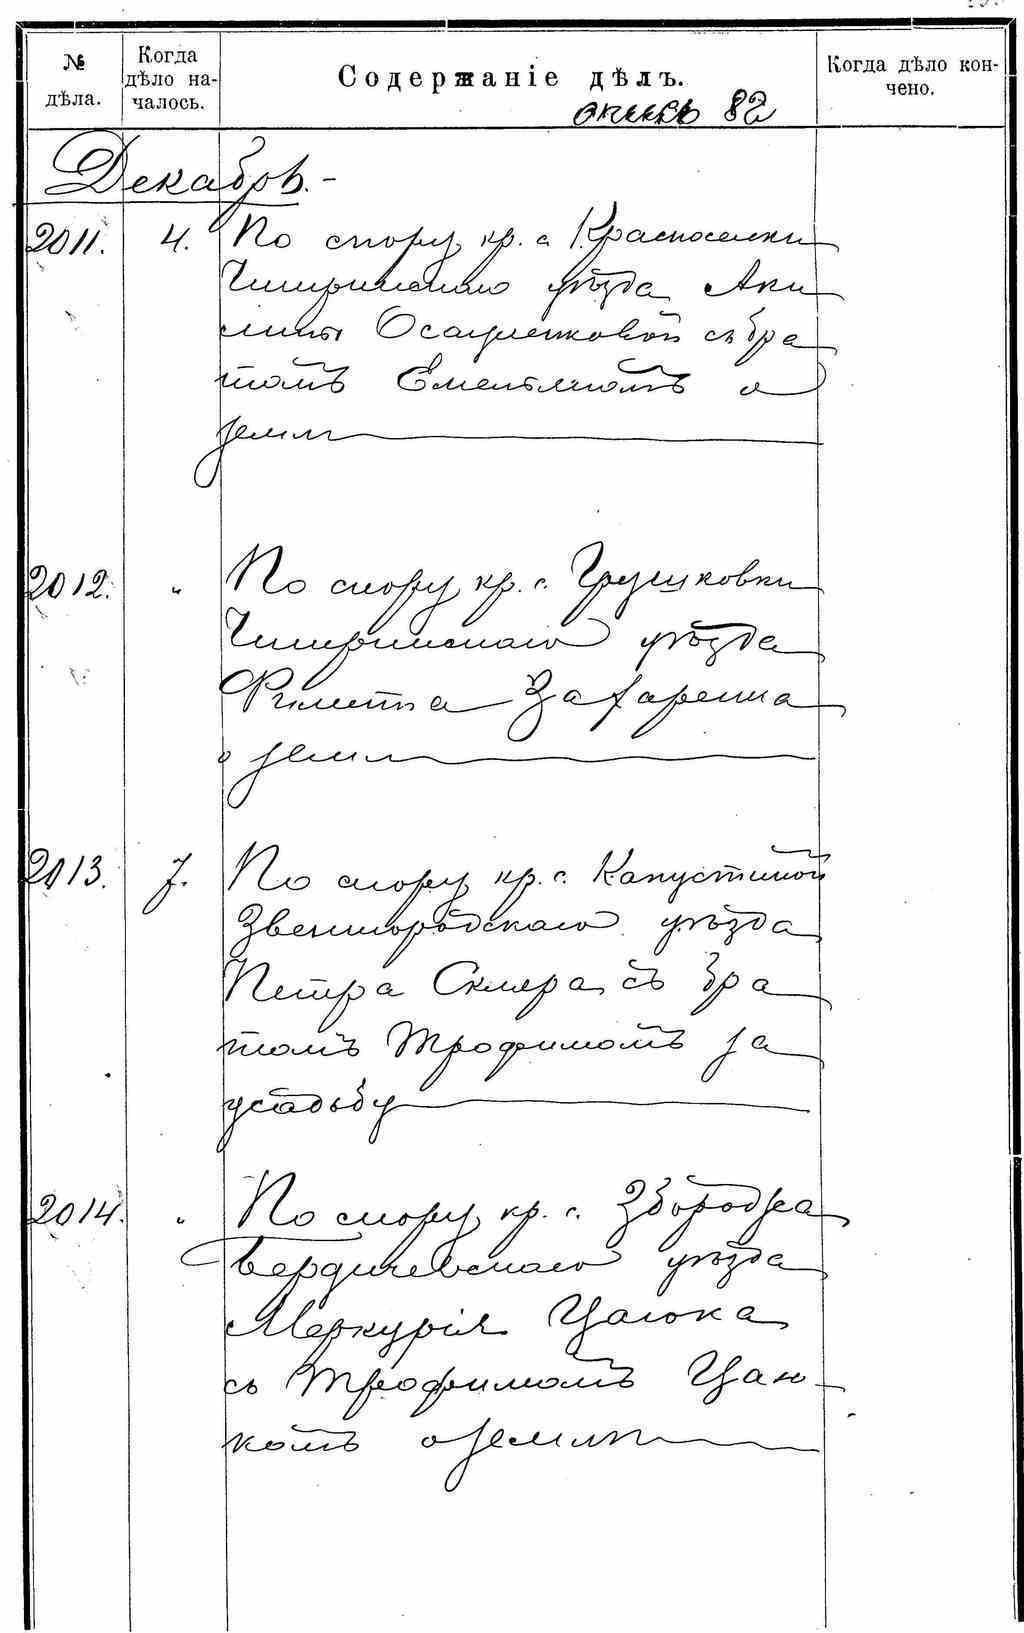 № дѣла.
Когда дѣло на-
чалось.
Содержаніе дѣлъ.
Когда дѣло кон-
чено.
опись 82
Декабрь.
2011. 4. По спору кр. с. Красноселки
Чигиринскаго уѣзда Аки
лины Осауленковой съ бра
томъ Емельяномъ о
землѣ
2012. " По спору кр. с. Грушковки
Чигиринскаго уѣзда
Филиппа Захаренка
о землѣ
2013. 7. По спору кр. с. Капустиной
Звенигородскаго уѣзда
Петра Скляра съ бра
томъ Трофимомъ за
усадьбу
2014. " По спору кр. с.
Бердичевскаго уѣзда
Меркурія Цаюка
съ Трофимомъ Цаю-
комъ о землѣ